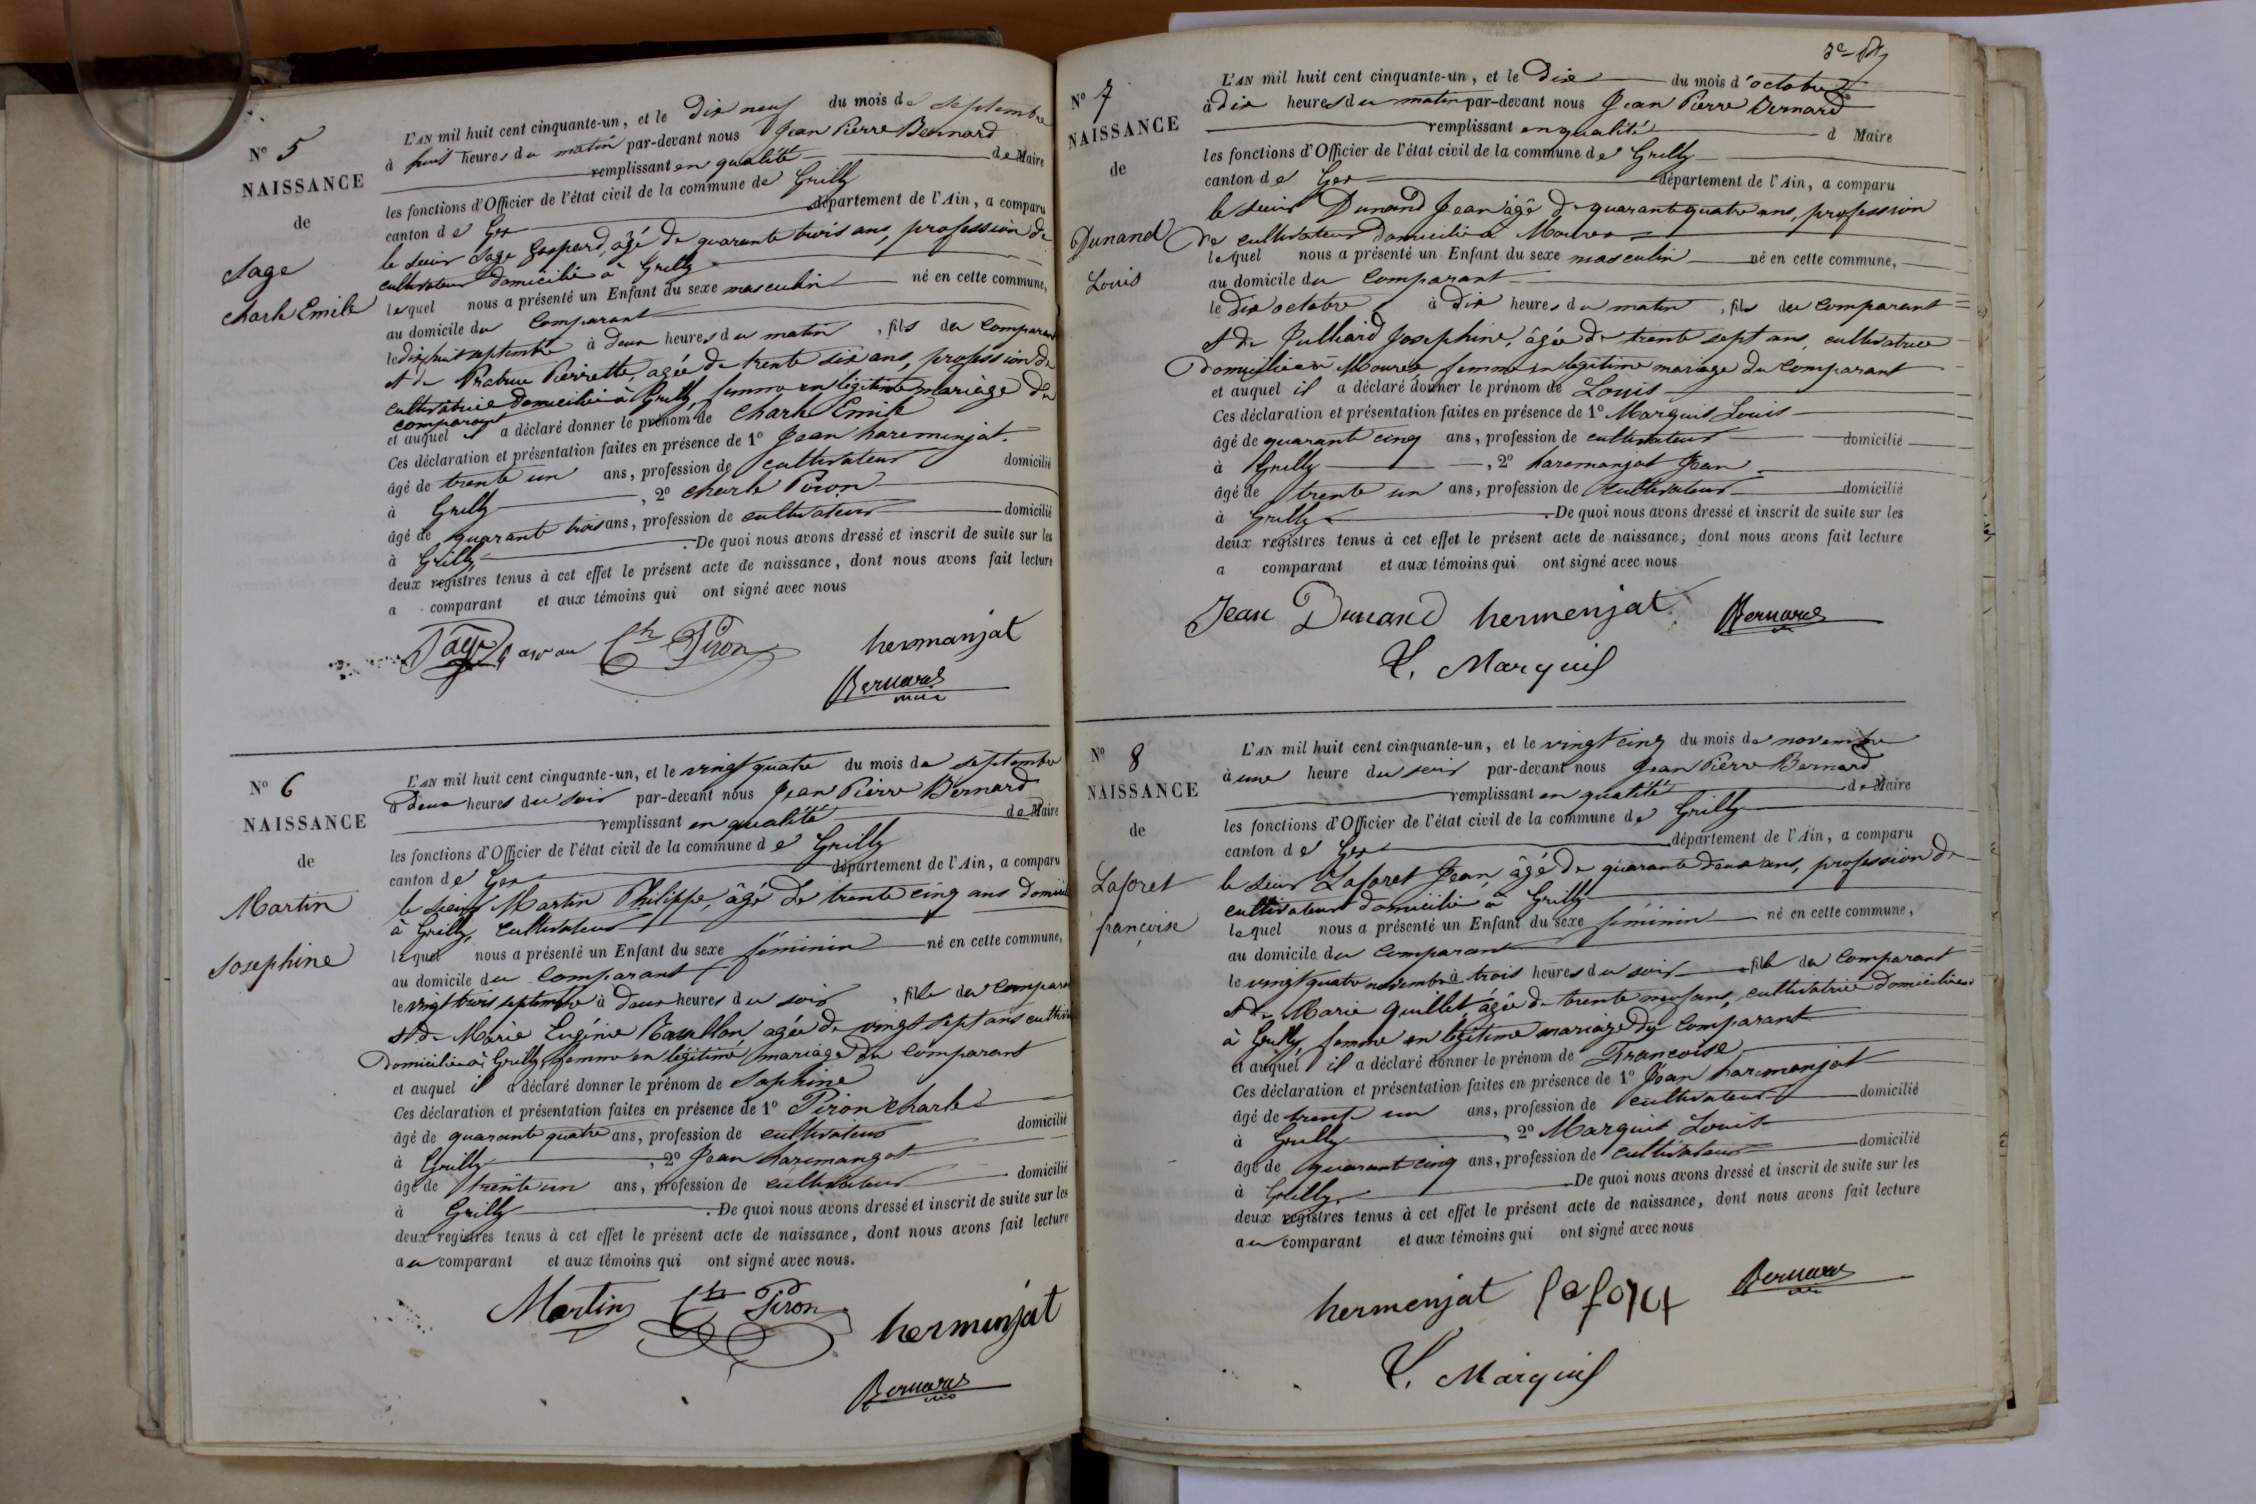 N° 5
NAISSANCE
de
Sage
Charle Emile
L'AN mil huit cent cinquante-un, et le Dix neuf du mois de Septembre
à huit heures du matin par-devant nous Jean Pierre Bernard
remplissant en qualité de Maire
les fonctions d'Officier de l'état civil de la commune de Grilly
canton de Gex département de l'Ain, a comparu
le sieur Sage Gaspard, âgé de quarante trois ans, profession de
cultivateur domicilié à Grilly
lequel nous a présenté un Enfant du sexe masculin né en cette commune,
au domicile du Comparant
le dix huit septembre à Deux heures du matin, fils du Comparant
et de Pierrette, agée de trente six ans, profession de
cultivatrice domiciliée à Grilly femme en légitime mariage du
comparant
et auquel il a déclaré donner le prénom de Charle Emile
Ces déclaration et présentation faites en présence de 1° Jean haremenjat
âgé de trente un ans, profession de cultivateur domicilié
à Grilly, 2° Charle Piron
âgé de quarante trois ans, profession de cultivateur domicilié
à Grilly. De quoi nous avons dressé et inscrit de suite sur les
deux registres tenus à cet effet le présent acte de naissance, dont nous avons fait lecture
a comparant et aux témoins qui ont signé avec nous
Sage Ch Piron hermanjat
Bernard
N° 6
NAISSANCE
de
Martin
Josephine
L'AN mil huit cent cinquante-un, et le vingt quatre du mois de septembre
à Deux heures du soir par-devant nous Jean Pierre Bernard
remplissant en qualité de Maire
les fonctions d'Officier de l'état civil de la commune de Grilly
canton de Gex département de l'Ain, a comparu
le sieur Martin Philippe, âgé de trente cinq ans domicilié
à Grilly, cultivateur
lequel nous a présenté un Enfant du sexe féminin né en cette commune,
au domicile du Comparant
le vingt trois septembre à Deux heures du soir, fille du Comparant
et de Marie Eugénie agée de vingt sept ans
Domiciliée à Grilly, femme en légitime mariage du Comparant
et auquel il a déclaré donner le prénom de Josphine
Ces déclaration et présentation faites en présence de 1° Piron Charle
âgé de quarante quatre ans, profession de cultivateur domicilié
à Grilly, 2° Jean haremangat
âgé de trente un ans, profession de cultivateur domicilié
à Grilly. De quoi nous avons dressé et inscrit de suite sur les
deux registres tenus à cet effet le présent acte de naissance, dont nous avons fait lecture
au comparant et aux témoins qui ont signé avec nous.
Martin Ch Piron hermenjat
Bernard
N° 7
NAISSANCE
de
Dunand
Louis
L'AN mil huit cent cinquante-un, et le Dix du mois d'octobre
à dix heures du matin par-devant nous Jean Pierre Bernard
remplissant en qualité d Maire
les fonctions d'Officier de l'état civil de la commune de Grilly
canton de Gex département de l'Ain, a comparu
le sieur Dunand Jean âgé de quarante quatre ans, profession
de cultivateur domicilié à Mourex
lequel nous a présenté un Enfant du sexe masculin né en cette commune,
au domicile du Comparant
le Dix octobre à dix heures du matin, fils du Comparant
et de Julliard Josephine, âgée de trente sept ans, cultivatrice
Domiciliée à Mourex femme en légitime mariage du Comparant
et auquel il a déclaré donner le prénom de Louis
Ces déclaration et présentation faites en présence de 1° Marquis Louis
âgé de quarante cinq ans, profession de cultivateur domicilié
à Grilly, 2° haremanjat Jean
âgé de trente un ans, profession de cultivateur domicilié
à Grilly. De quoi nous avons dressé et inscrit de suite sur les
deux registres tenus à cet effet le présent acte de naissance, dont nous avons fait lecture
a comparant et aux témoins qui ont signé avec nous
Jean Dunand hermenjat Bernard
L. Marquis
N° 8
NAISSANCE
de
Laforet
françoise
L'AN mil huit cent cinquante-un, et le vingt cinq du mois de novembre
à une heure du soir par-devant nous Jean Pierre Bernard
remplissant en qualité de Maire
les fonctions d'Officier de l'état civil de la commune de Grilly
canton de Gex département de l'Ain, a comparu
le sieur Laforet Jean, âgé de quarante deux ans, profession de
cultivateur domicilié à Grilly
lequel nous a présenté un Enfant du sexe féminin né en cette commune,
au domicile du Comparant
le vingt quatre novembre à trois heures du soir fille du Comparant
et de Marie Quillet, âgée de trente neuf ans, cultivatrice domiciliée
à Grilly, femme en légitime mariage du Comparant
et auquel il a déclaré donner le prénom de Françoise
Ces déclaration et présentation faites en présence de 1° Jean haremenjat
âgé de trente un ans, profession de cultivateur domicilié
à Grilly, 2° Marquis Louis
âgé de quarant cinq ans, profession de cultivateur domicilié
à Grilly. De quoi nous avons dressé et inscrit de suite sur les
deux registres tenus à cet effet le présent acte de naissance, dont nous avons fait lecture
au comparant et aux témoins qui ont signé avec nous
hermenjat laforet Bernard
L. Marquis